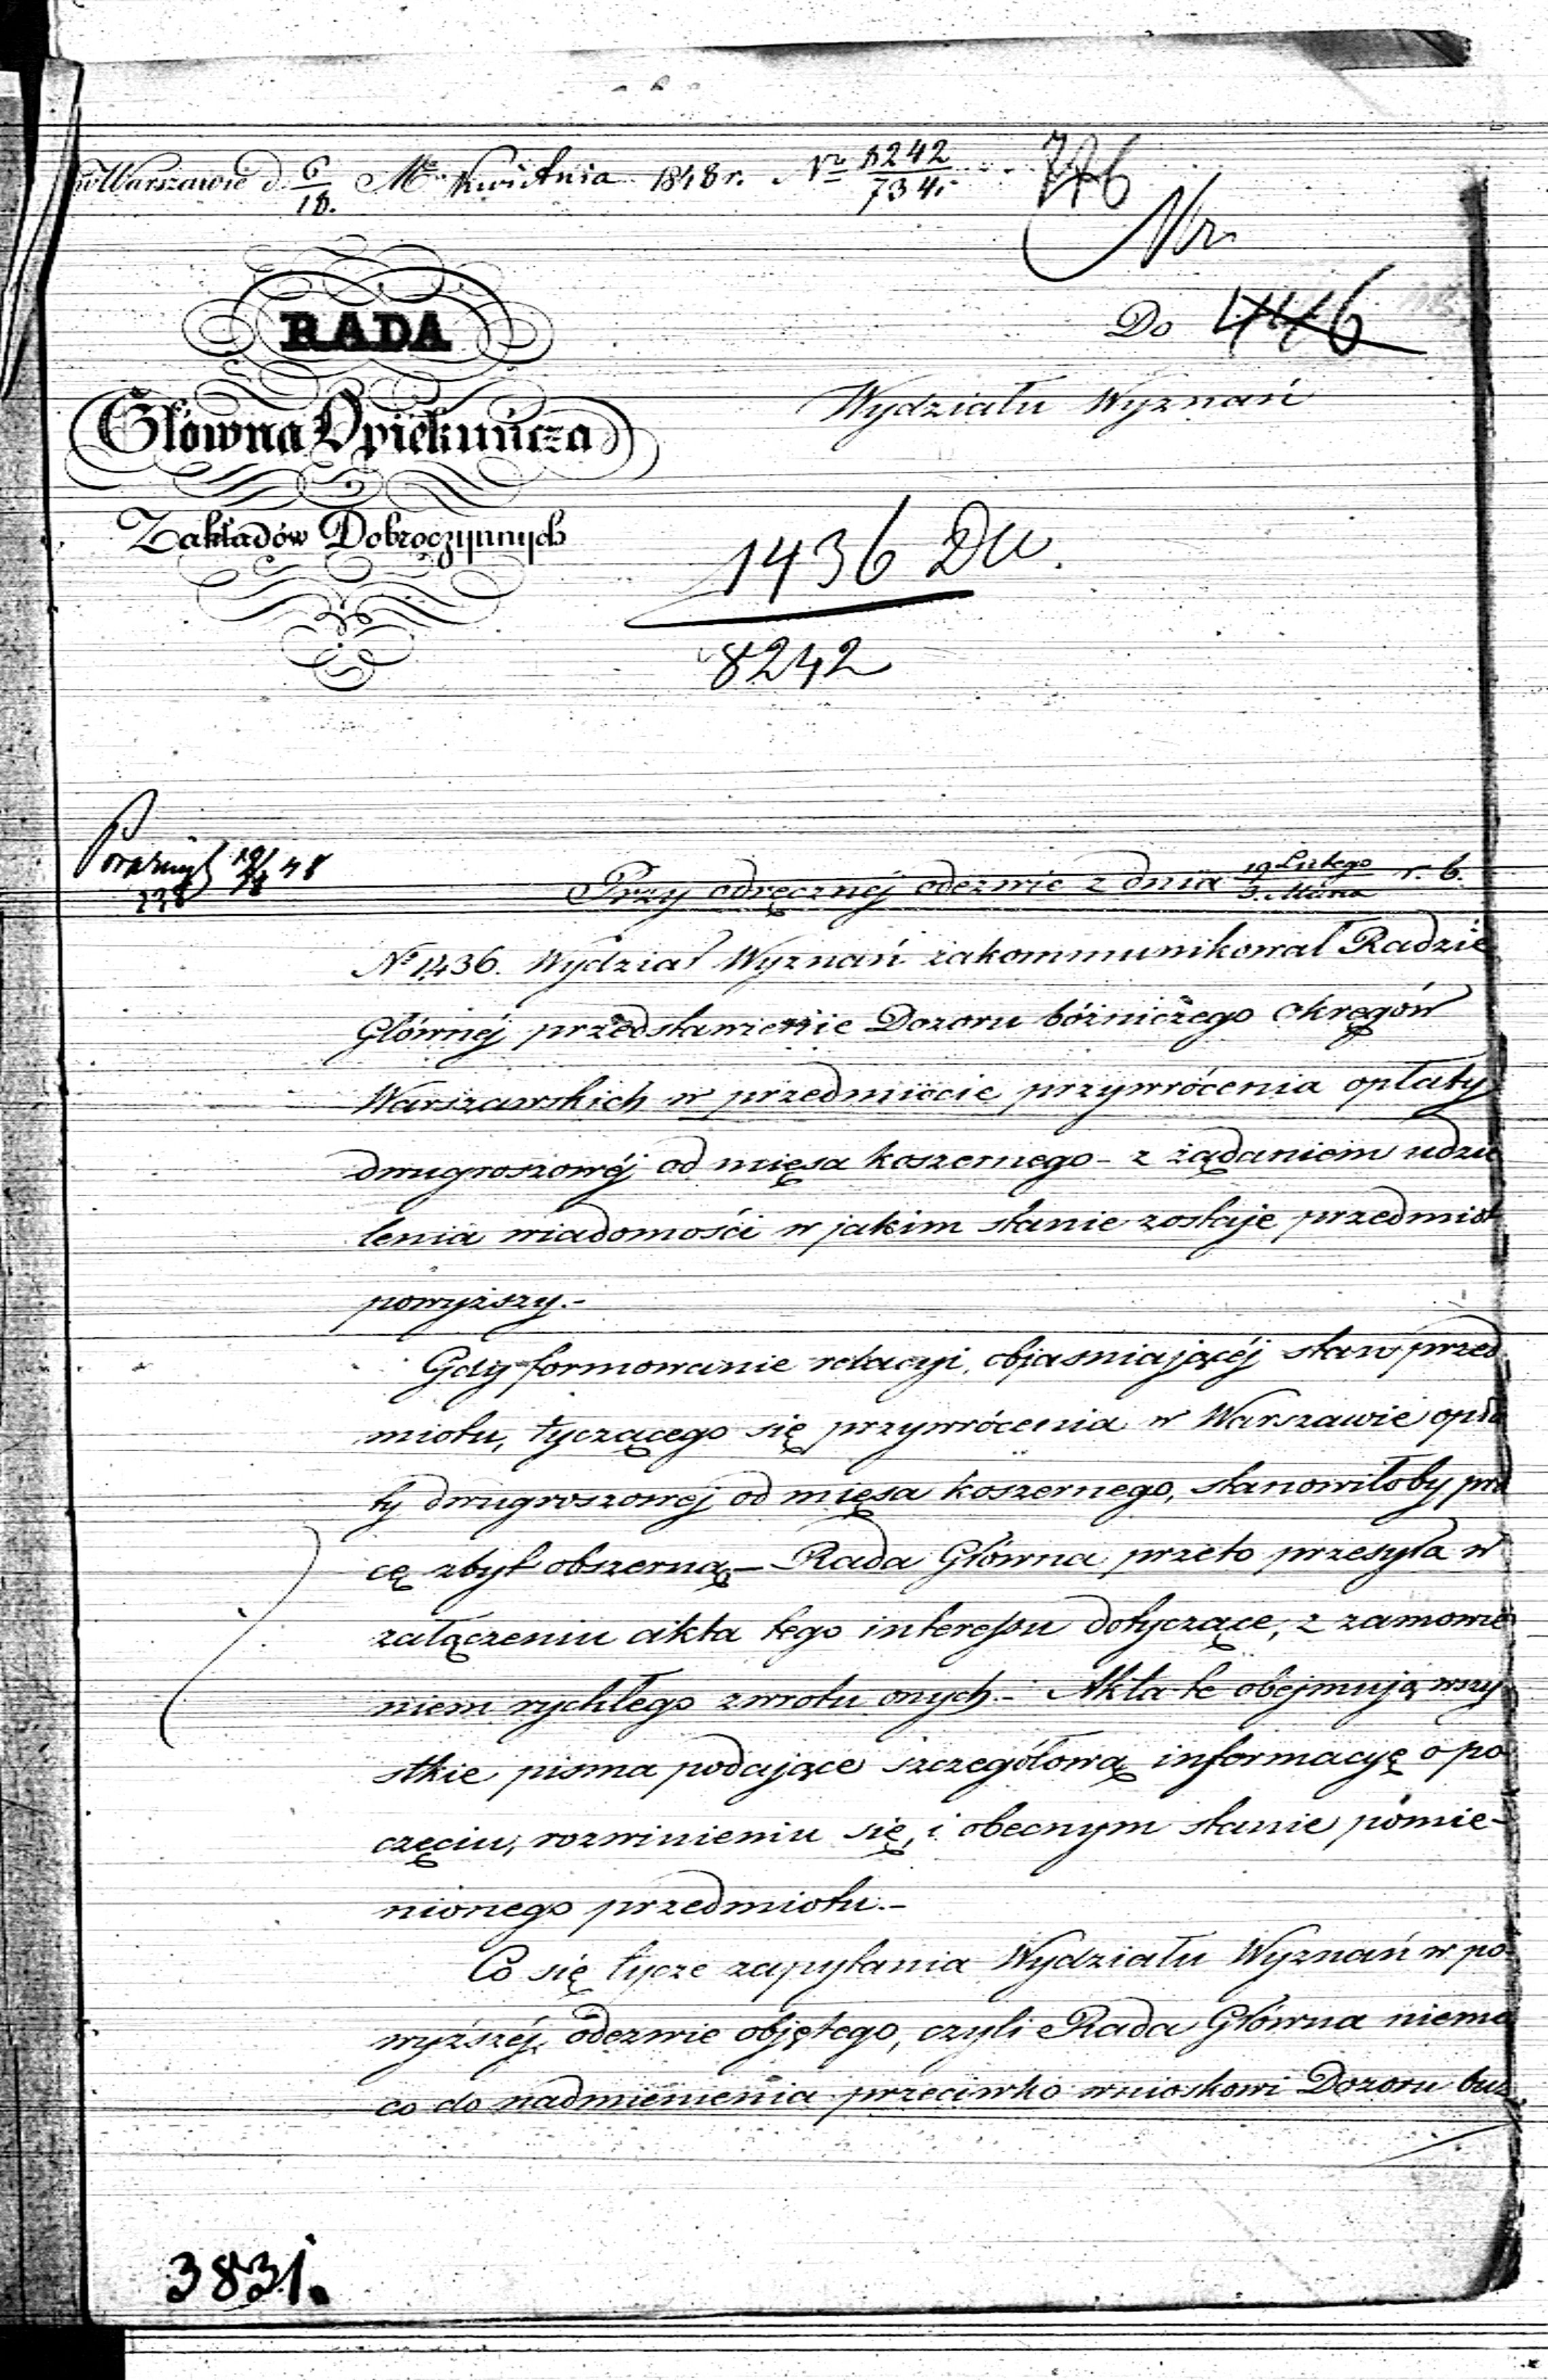 w Warszawie d. 6/18. Mca Kwietnia 1848 r. Nr 8242/734
776
Nr
RADA
Do 446
Główna Opiekuńcza
Wydziału Wyznań
Zakładów Dobroczynnych
1436 DW.
8242
19/4 48
228
Przy odręcznéj odezwie z dnia 19 Lutego/3. Marca r. b.
No 1436. Wydział Wyznań zakommunikował Radzie
Głównéj przedstawienie Dozoru bóżniczego Okręgów
Warszawskich w przedmiocie przywrócenia opłaty
dwugroszowéj od mięsa koszernego - z żądaniem udzie
lenia wiadomości w jakim stanie zostaje przedmiot
powyższy.-
Gdy formowanie relacyi, objasniającéj stan przed
miotu, tyczącego się przywrócenia w Warszawie opła
ty dwugroszowej od mięsa koszernego, stanowiłoby pra
cę zbyt obszerną - Rada Główna przeto przesyła w
załączeniu akta tego interessu dotyczące, z zamówie
niem rychłego zwrotu onych.- Akta te obejmują wszy
stkie pisma podające szczegółową informacyę o po
częciu, rozwinieniu się, i obecnym stanie pomie-
nionego przedmiotu.-
Co się tycze zapytania Wydziału Wyznań w po-
wyższéj odezwie objętego, czyli Rada Główna niema
co do nadmienienia przeciwko wnioskowi Dozoru buż
3831.